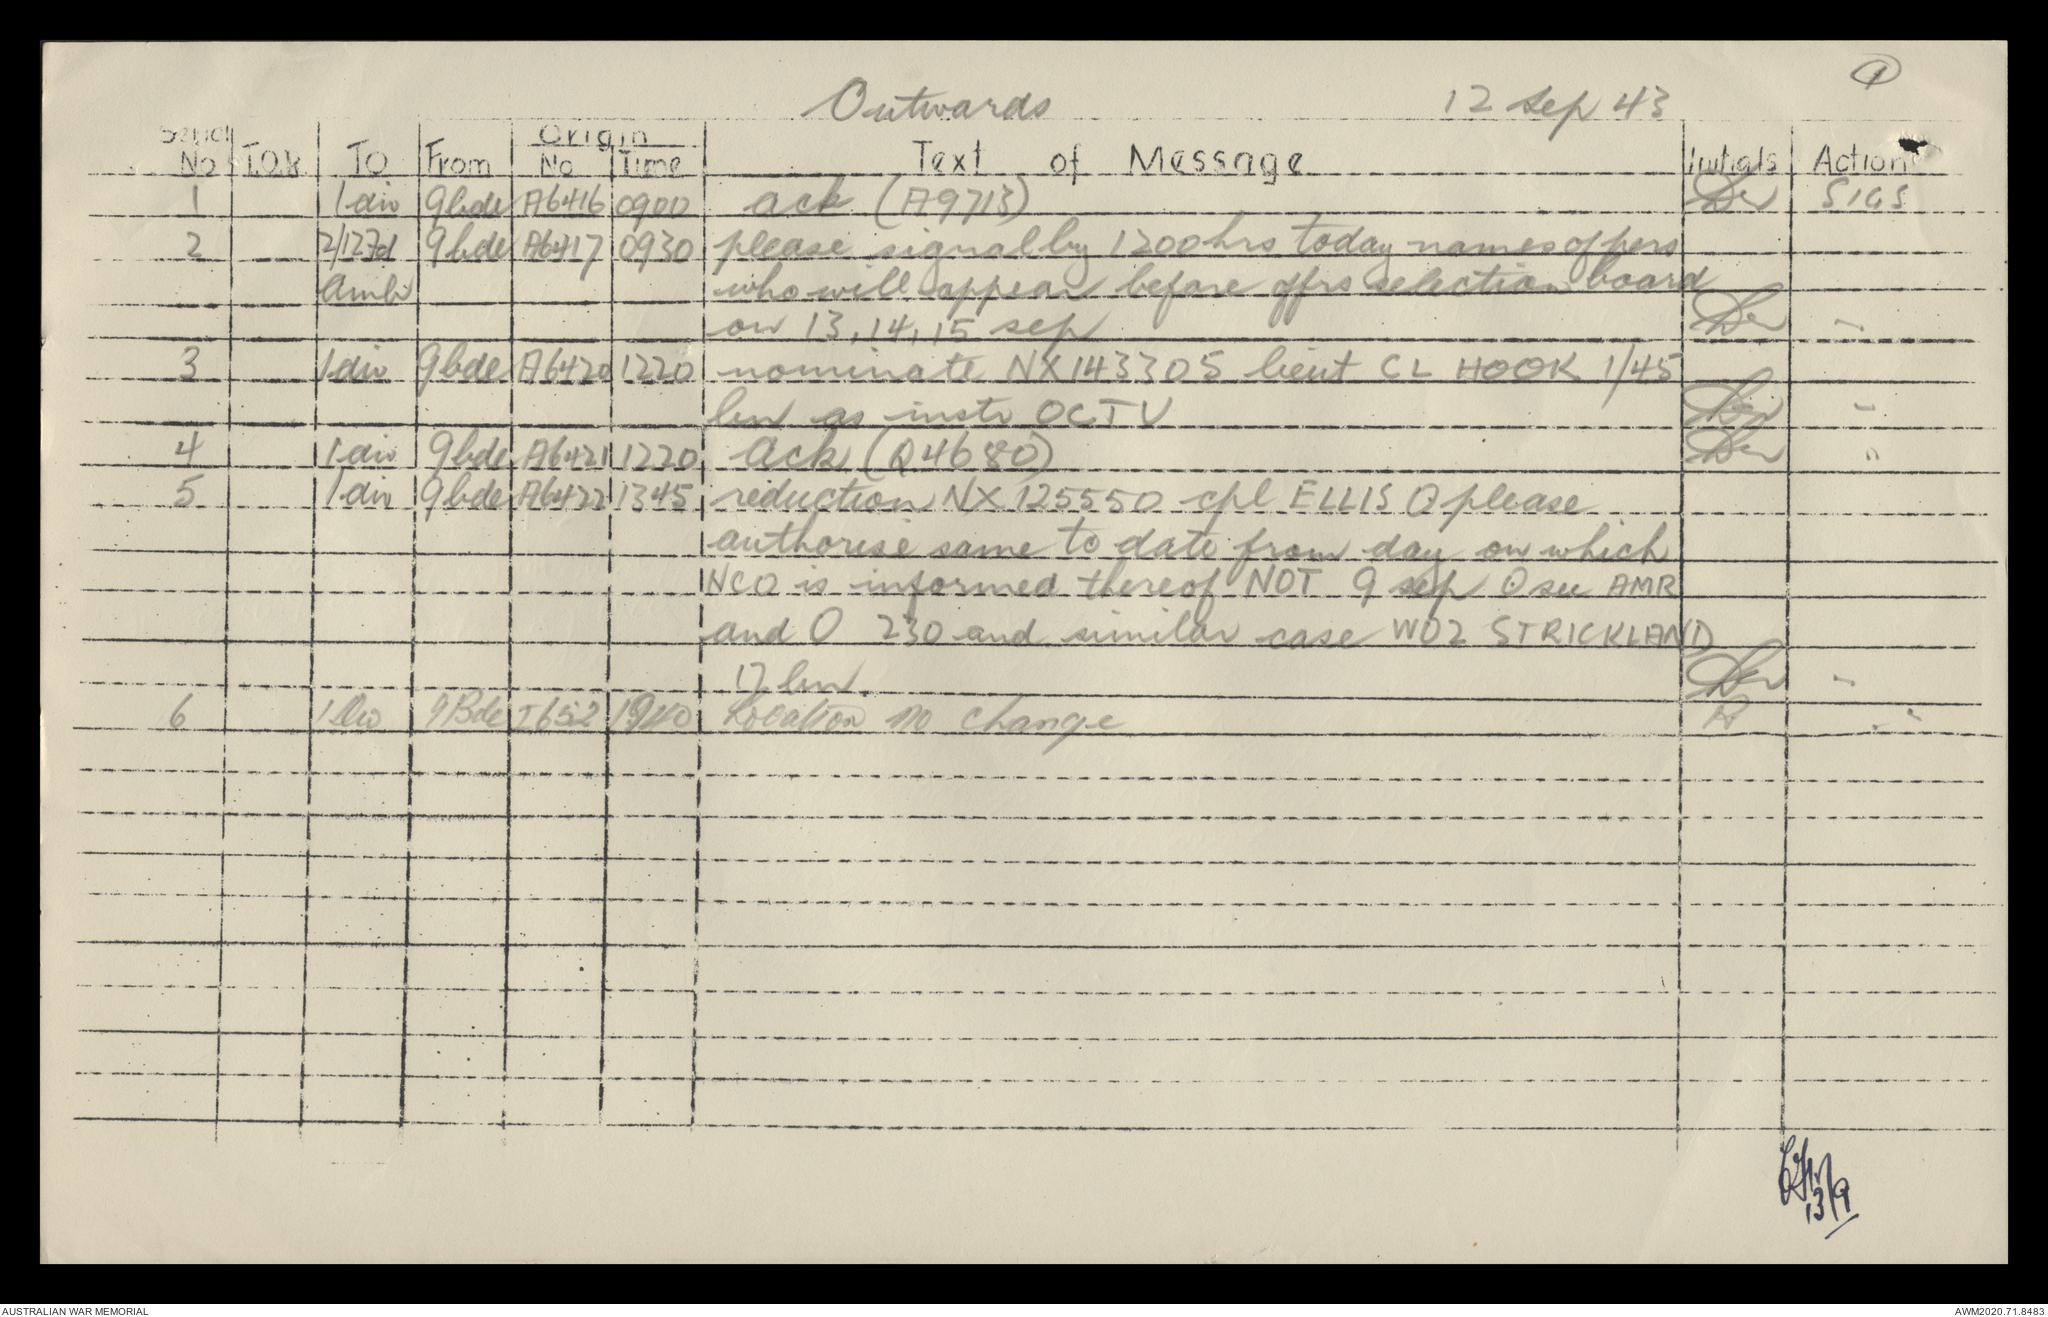 1
Outwards 12 Sep 43
Serial No T.O.R TO From Origin No Time Text of Message Initials Action
1 1 div 9 bde A6416 0900 ack (A9713) SIGS
2 2/12 Fd 9 bde A6417 0930 please signal by 1200 hrs today names of pers
Amb who will appear before offrs selection board
on 13, 14, 15 sep "
3 1 div 9 bde A6420 1220 nominate NX143305 lieut CL HOOK 1/45
bn as instr OCTU "
4 1 div 9 bde A6421 1220 Ack (Q4680) "
5 1 div 9 bde A6422 1345 reduction NX125550 cpl ELLIS O please
authorise same to date from day on which
NCO is informed thereof NOT 9 sep O see AMR
and O 230 and similar case WO2 STRICKLAND
17 bn. "
6 1 Div 9 Bde I652 1940 Location no change "
13/9
AUSTRALIAN WAR MEMORIAL AWM2020.71.8483